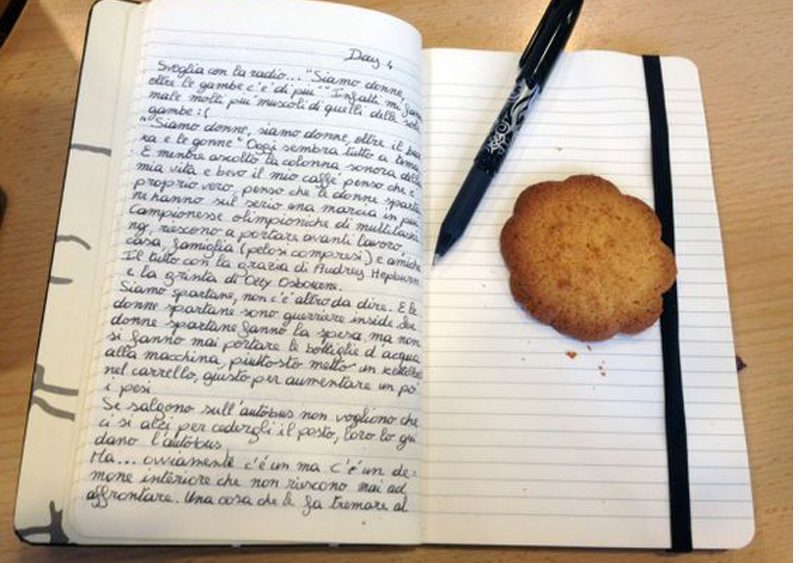 Day 4
Sveglia con la radio... "Siamo donne,
oltre le gambe c'è di più" Infatti mi fanno
male molti più muscoli di quelli delle sole
gambe :(
"Siamo donne, siamo donne, oltre il
e le gonne" Oggi sembra tutto a tema
E mentre ascolto la colonna sonora della
mia vita e bevo il mio caffè penso che è
proprio vero, penso che le donne sparta
ne hanno sul serio una marcia in più
Campionesse olimpioniche di multitaski
ng, riescono a portare avanti lavoro,
casa, famiglia (pelosi compresi) e amiche
Il tutto con la grazia di Audrey Hepburn
e la grinta di Ozzy Osbourne.
Siamo spartane, non c'è altro da dire. E le
donne spartane sono guerriere inside. Le
donne spartane fanno la spesa, ma non
si fanno mai portare le bottiglie d'acqua
alla macchina, piuttosto metto un
nel carrello, giusto per aumentare un po'
i pesi
Se salgono sull'autobus non vogliono che
ci si alzi per cedergli il posto, loro lo gui
dano l'autobus
Ma... ovviamente c'è un ma c'è un de-
mone interiore che non riescono mai ad
affrontare. Una cosa che le fa tremare al